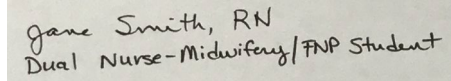 Jane Smith, RN
Dual Nurse-Midwifery/FNP Student